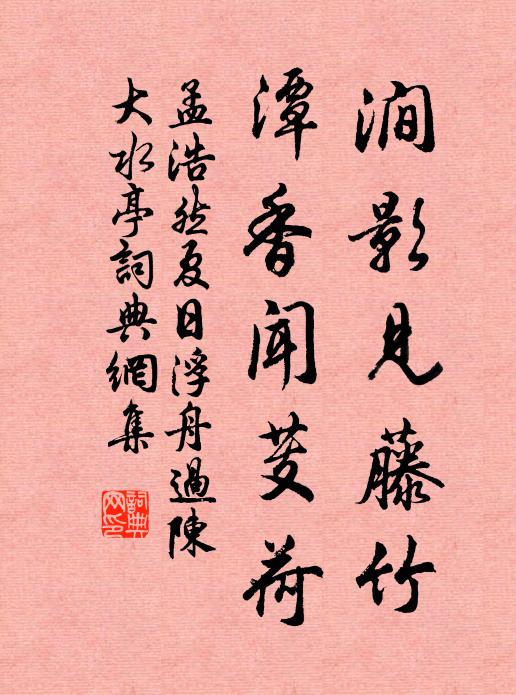 澗影見藤竹
潭香聞芰荷
孟浩然夏日浮舟過陳
大水亭詞典網集
詞典
网印